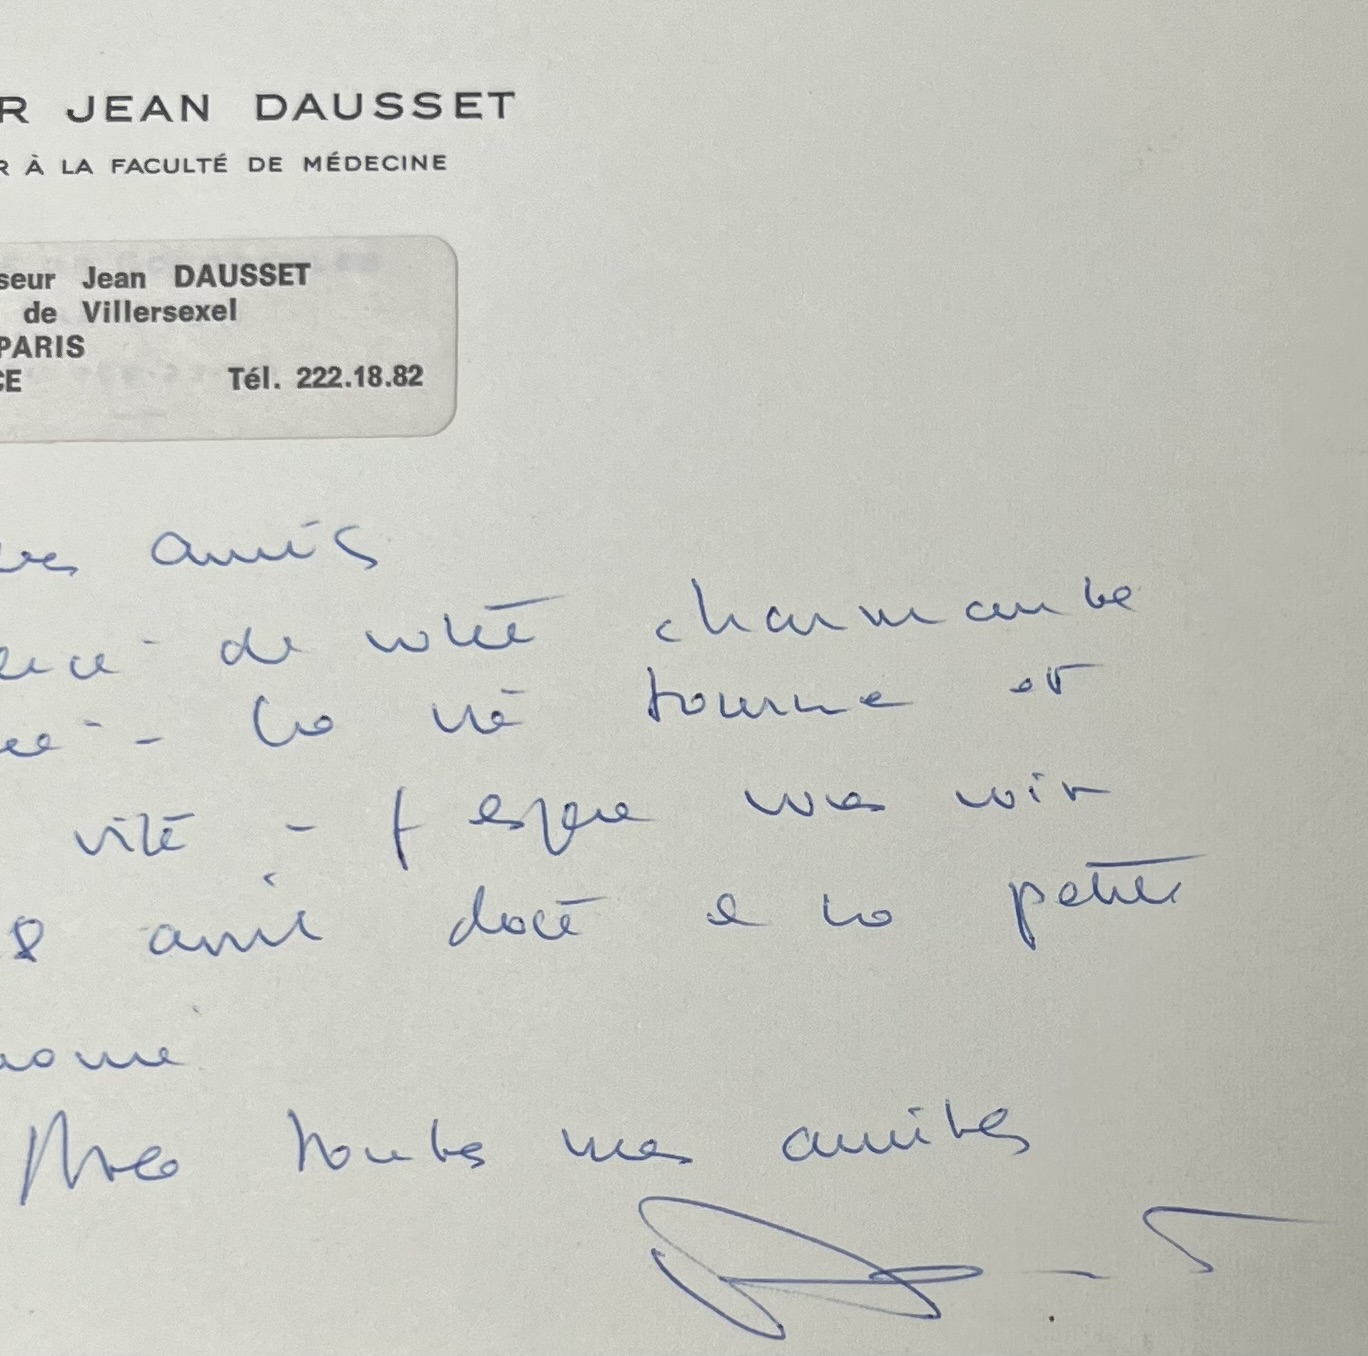 R JEAN DAUSSET
R À LA FACULTÉ DE MÉDECINE
seur Jean DAUSSET
de Villersexel
PARIS
CE Tél. 222.18.82
amis
de votre charmante
La vie tourne et
vite - J espere vous voir
8 avril date de la petite
Avec toutes mes amities